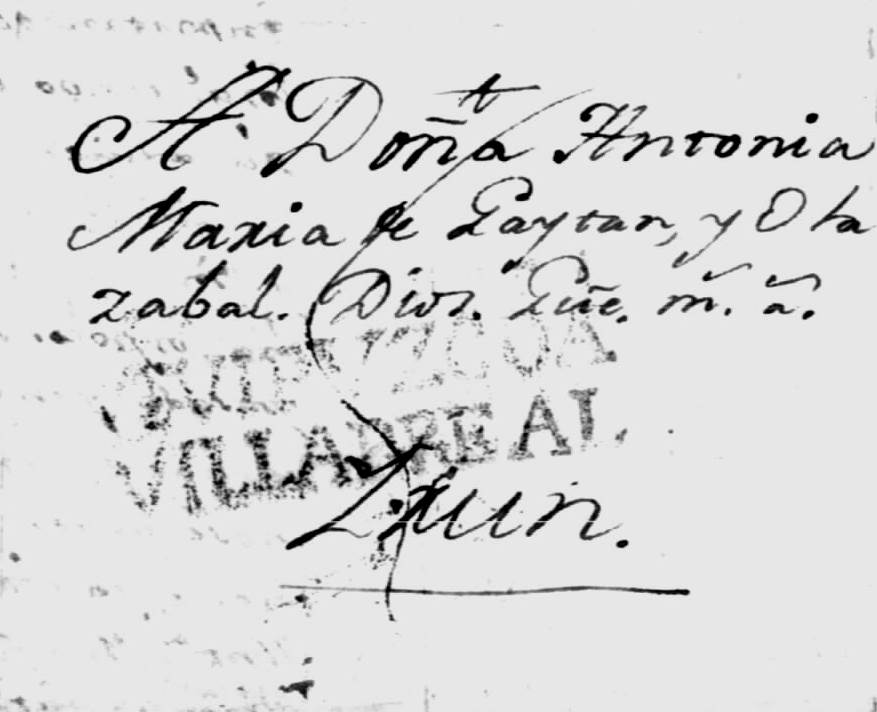 A Doña Antonia
Maria de Gaytan, y Ola
zabal. Dios. Gũe. m̃. ã.
GUIPUZCOA
VILLARREAL.
Irun.